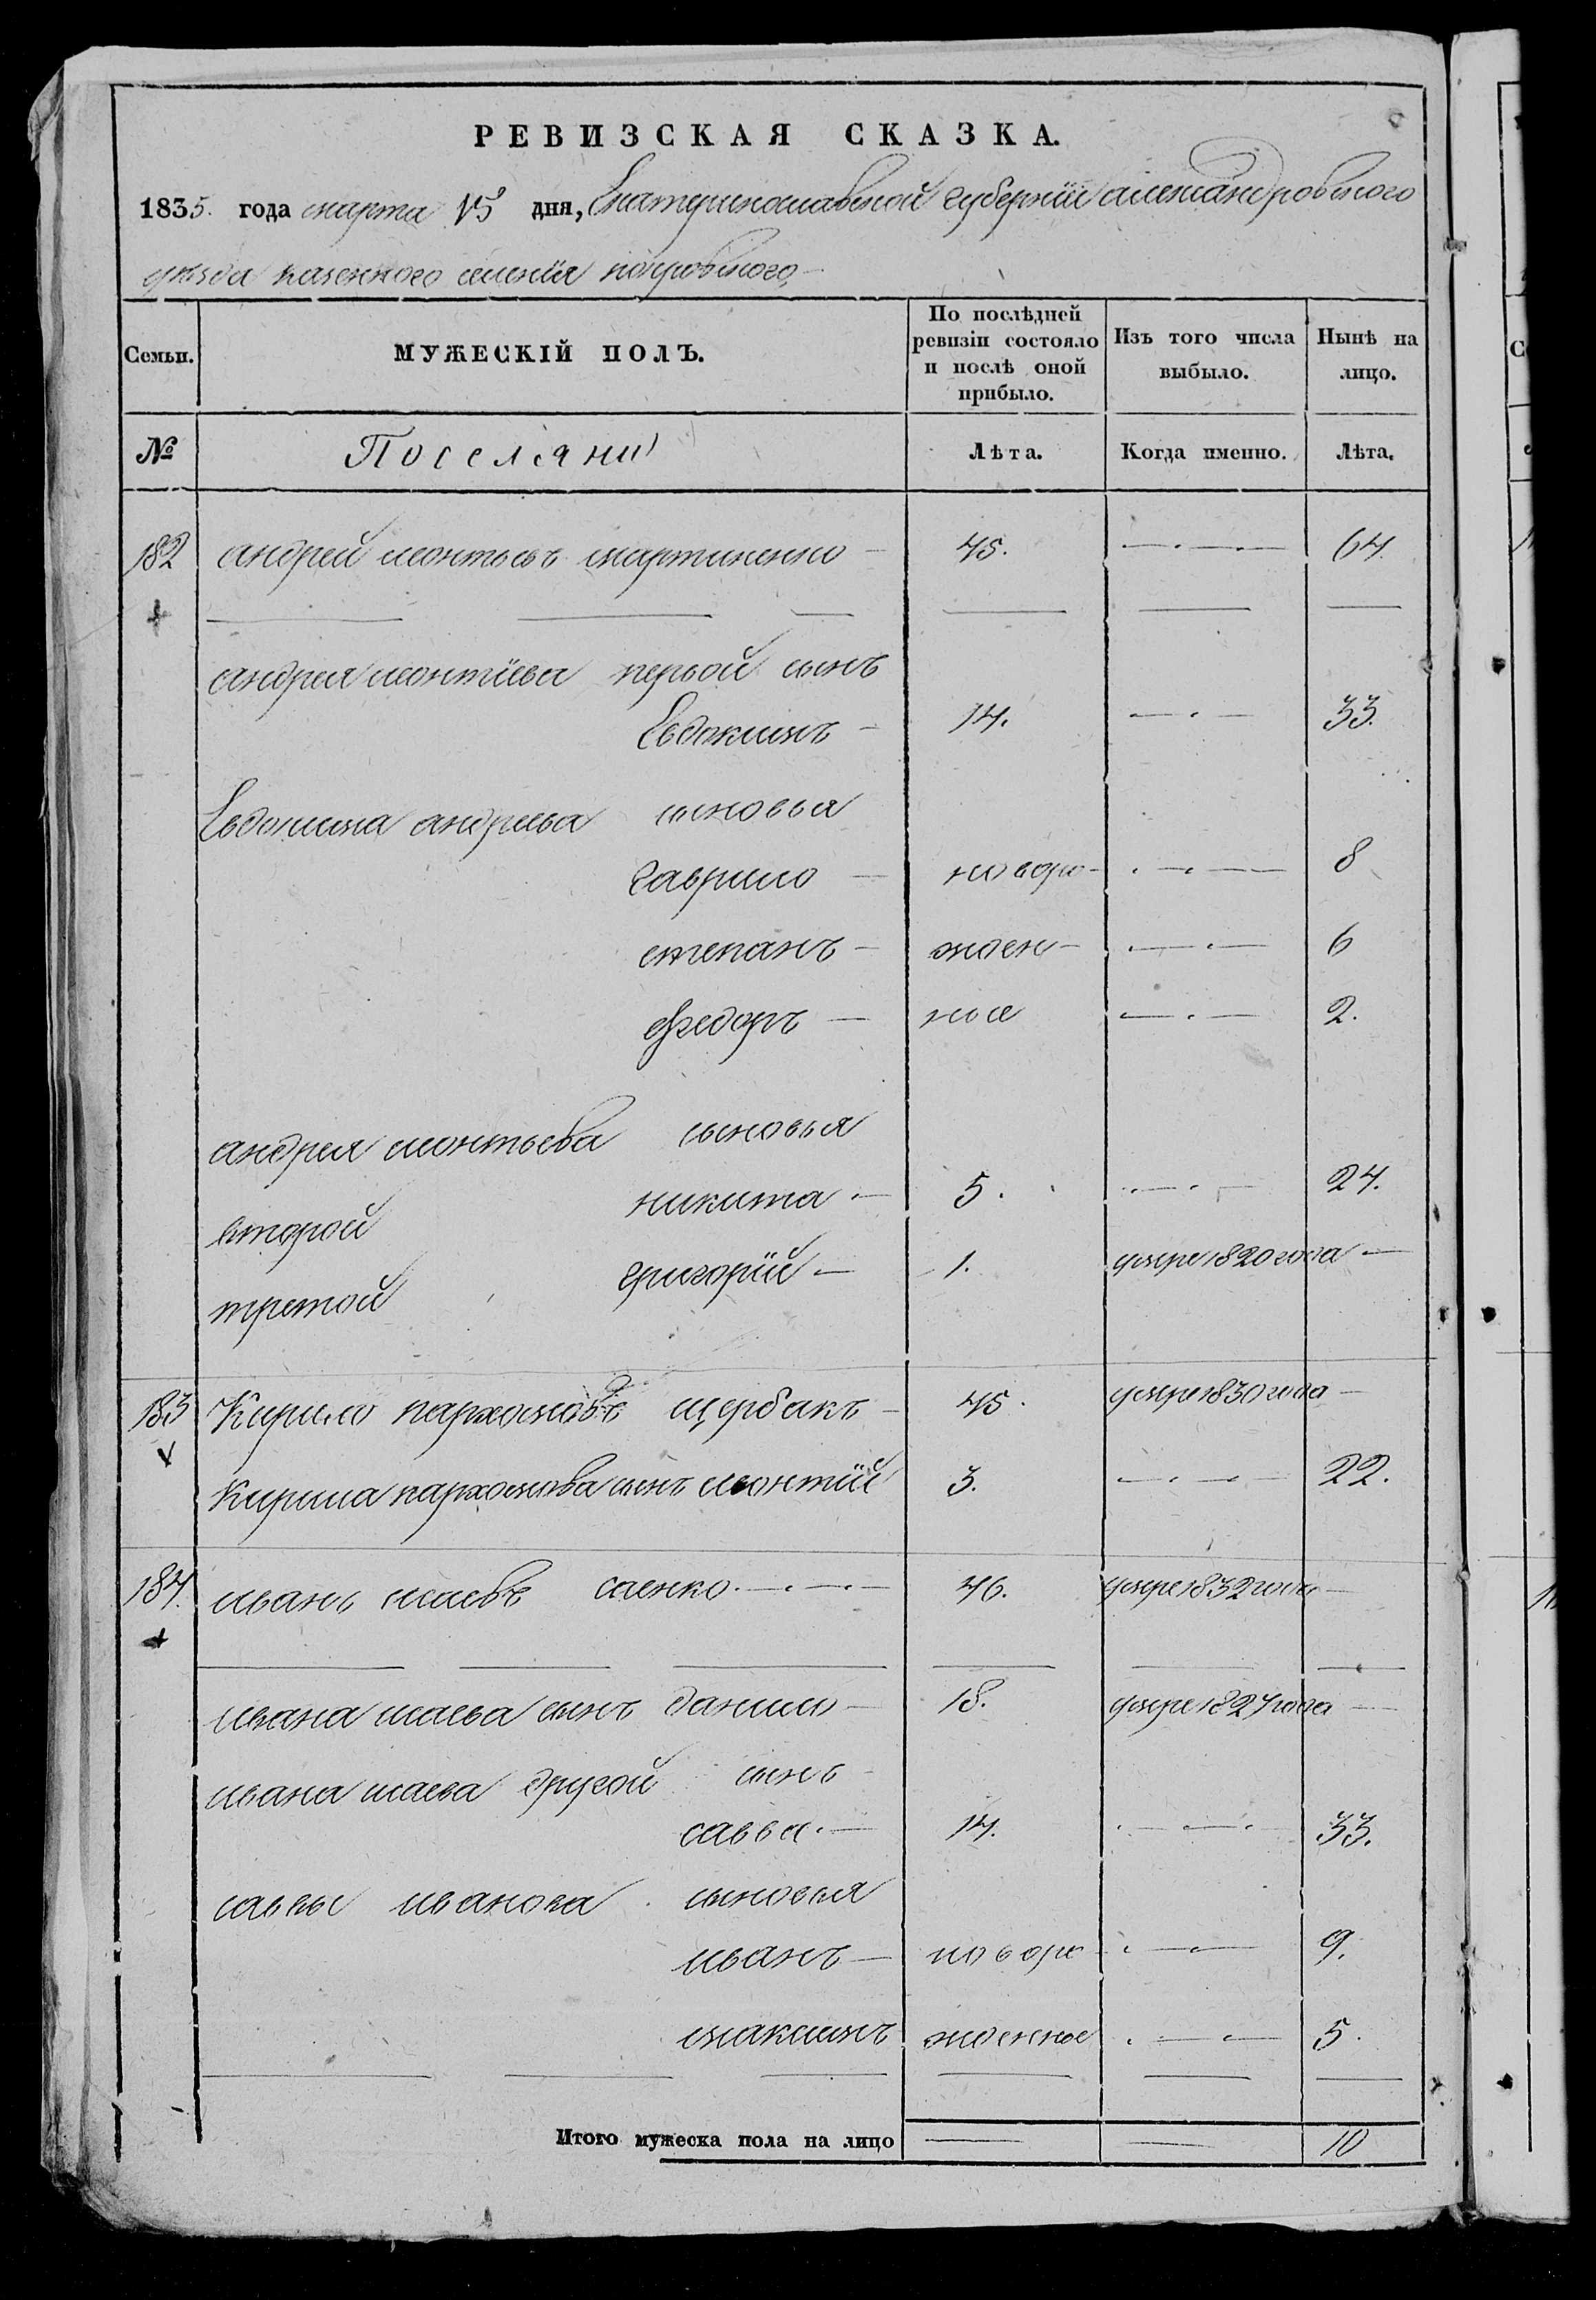 РЕВИЗСКАЯ СКАЗКА.
1835. года марта 15 дня, Екатеринославской губернiи александровского
уезда казенного селенiя покровского
Семьи. МУЖЕСКIЙ ПОЛЪ. По послѣдней ревизiи состояло и послѣ оной прибыло. Изъ того числа выбыло. Нынѣ на лицо.
№ Поселяни Лѣта. Когда именно. Лѣта.
182 андрей леонтьевъ мартиненко 45. 64.
андрея леонтiева первой сынъ
Евдокимъ 14. 33.
Евдокима андреева сыновья
гаврило новоро- 8
степанъ жден- 6
федоръ ное 2.
андрея леонтьева сыновья
второй никита 5. 24.
третой григорiй 1. умре 1820 года
183 Кирило пархомовъ щербакъ 45. умре 1830 года
Кирила пархомова сынъ леонтiй 3. 22.
184. иванъ исаевъ саенко. 46. умре 1832 года
ивана исаева сынъ данило 18. умре 1827 года
ивана исаева другой сынъ
савва. 14. 33.
саввы иванова сыновья
иванъ новоро 9.
макимъ жденные 5.
Итого мужеска пола на лицо 10